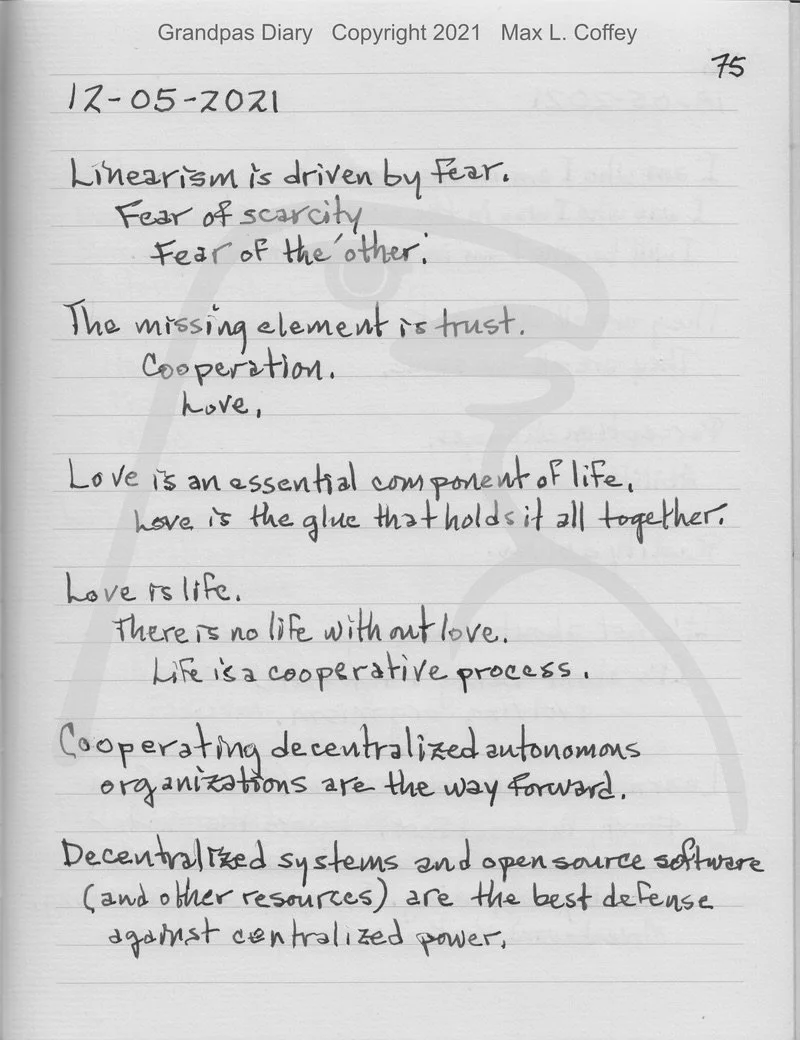 Grandpas Diary Copyright 2021 Max L. Coffey
75
12-05-2021
Linearism is driven by fear.
Fear of scarcity
Fear of the 'other'.
The missing element is trust.
Cooperation.
Love.
Love is an essential component of life.
Love is the glue that holds it all together.
Love is life.
There is no life without love.
Life is a cooperative process.
Cooperating decentralized autonomous
organizations are the way forward.
Decentralized systems and open source software
(and other resources) are the best defense
against centralized power.